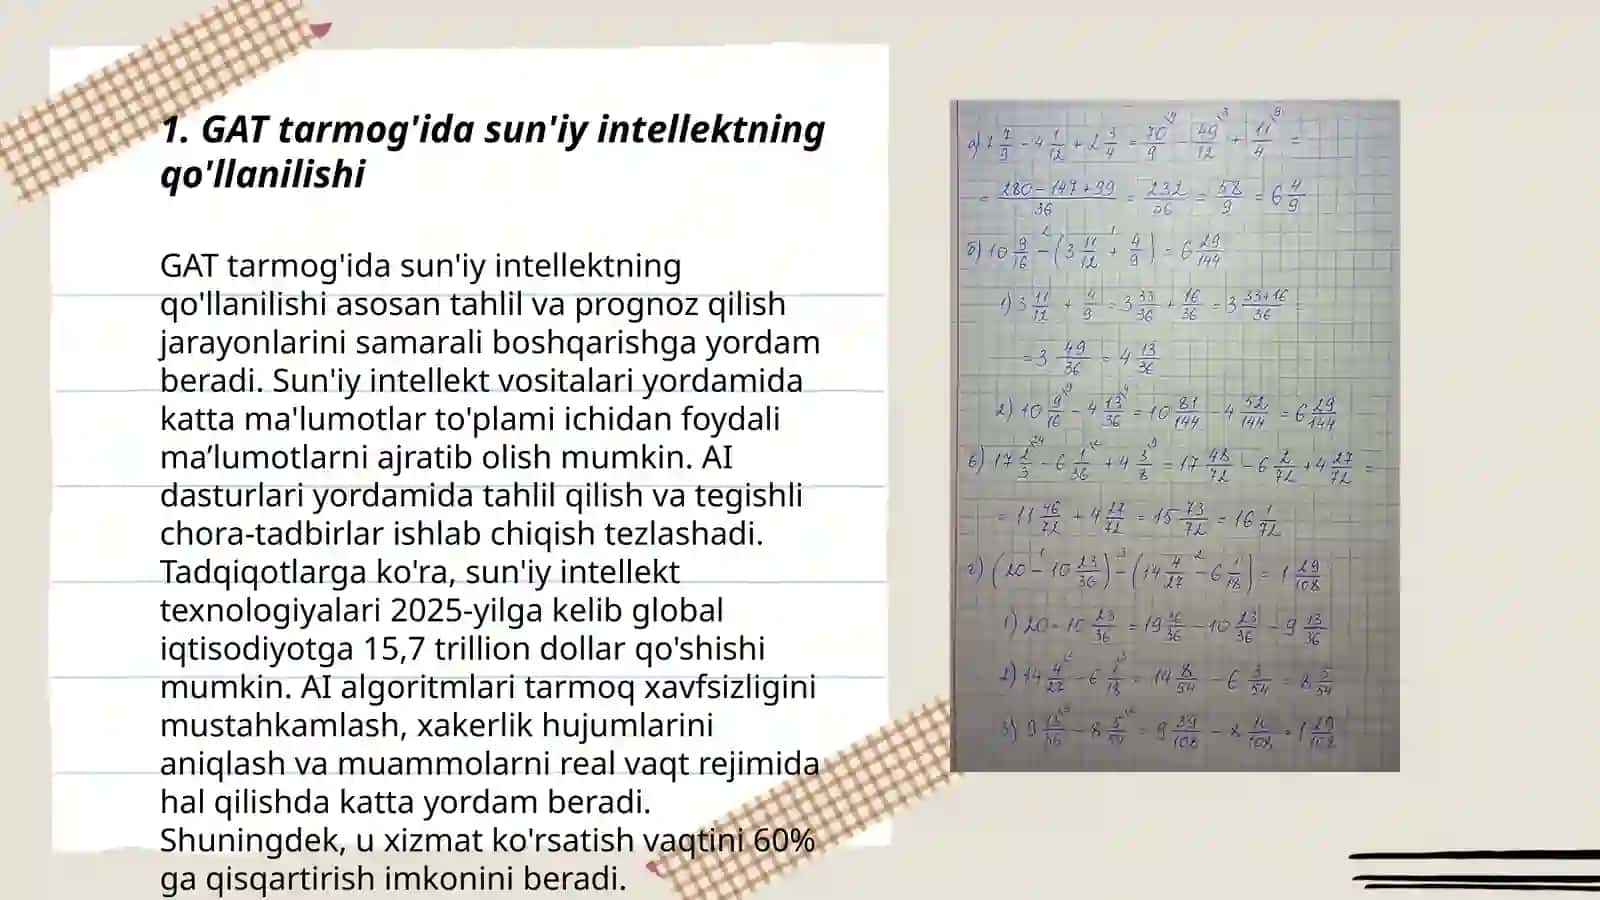 1. GAT tarmog'ida sun'iy intellektning
qo'llanilishi
GAT tarmog'ida sun'iy intellektning
qo'llanilishi asosan tahlil va prognoz qilish
jarayonlarini samarali boshqarishga yordam
beradi. Sun'iy intellekt vositalari yordamida
katta ma'lumotlar to'plami ichidan foydali
ma’lumotlarni ajratib olish mumkin. AI
dasturlari yordamida tahlil qilish va tegishli
chora-tadbirlar ishlab chiqish tezlashadi.
Tadqiqotlarga ko'ra, sun'iy intellekt
texnologiyalari 2025-yilga kelib global
iqtisodiyotga 15,7 trillion dollar qo'shishi
mumkin. AI algoritmlari tarmoq xavfsizligini
mustahkamlash, xakerlik hujumlarini
aniqlash va muammolarni real vaqt rejimida
hal qilishda katta yordam beradi.
Shuningdek, u xizmat ko'rsatish vaqtini 60%
ga qisqartirish imkonini beradi.
а) 7 7/9 - 4 1/12 + 2 3/4 = 70/9 - 49/12 + 11/4 =
= 280-147+99/36 = 232/36 = 58/9 = 6 4/9
б) 10 9/16 - (3 11/12 + 4/9) = 6 29/144
1) 3 11/12 + 4/9 = 3 33/36 + 16/36 = 3 33+16/36 =
= 3 49/36 = 4 13/36
2) 10 9/16 - 4 13/36 = 10 81/144 - 4 52/144 = 6 29/144
в) 17 2/3 - 6 1/36 + 4 3/8 = 17 48/72 - 6 2/72 + 4 27/72 =
= 11 46/72 + 4 27/72 = 15 73/72 = 16 1/72
г) (20 - 10 23/36) - (14 4/27 - 6 1/18) = 1 29/108
1) 20 - 10 23/36 = 19 36/36 - 10 23/36 = 9 13/36
2) 14 4/27 - 6 1/18 = 14 8/54 - 6 3/54 = 8 5/54
3) 9 13/36 - 8 5/54 = 9 39/108 - 8 10/108 = 1 29/108